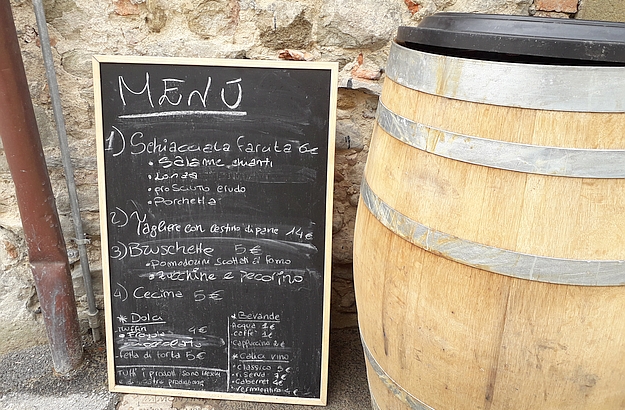 MENÚ
1) Schiacciata farcita 6€
• Salame chianti
• Lonza
• prosciutto crudo
• Porchetta
2) Tagliere con cestino di pane 14€
3) Bruschette 5€
• Pomodorini scottati al forno
• zucchine e pecorino
4) Cecina 5€
* Dolci
• Muffin 4€
• Fragole
cioccolato
• fetta di torta 5€
Tutti i prodotti sono
di nostra produzione
* Bevande
• Acqua 1€
• caffè 1€
• Cappuccino 2€
* Calici vino
• classico 5€
• riserva 7€
• cabernet 4€
• Vermentino 4€